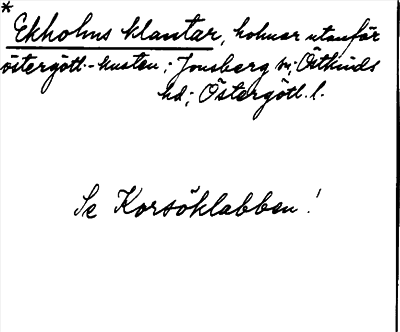 *
Ekholms klantar, holmar utanför
östergötl.-kusten; Jonsberg sn; Östkinds
hd; Östergötl. l.
Se Korsöklabben!